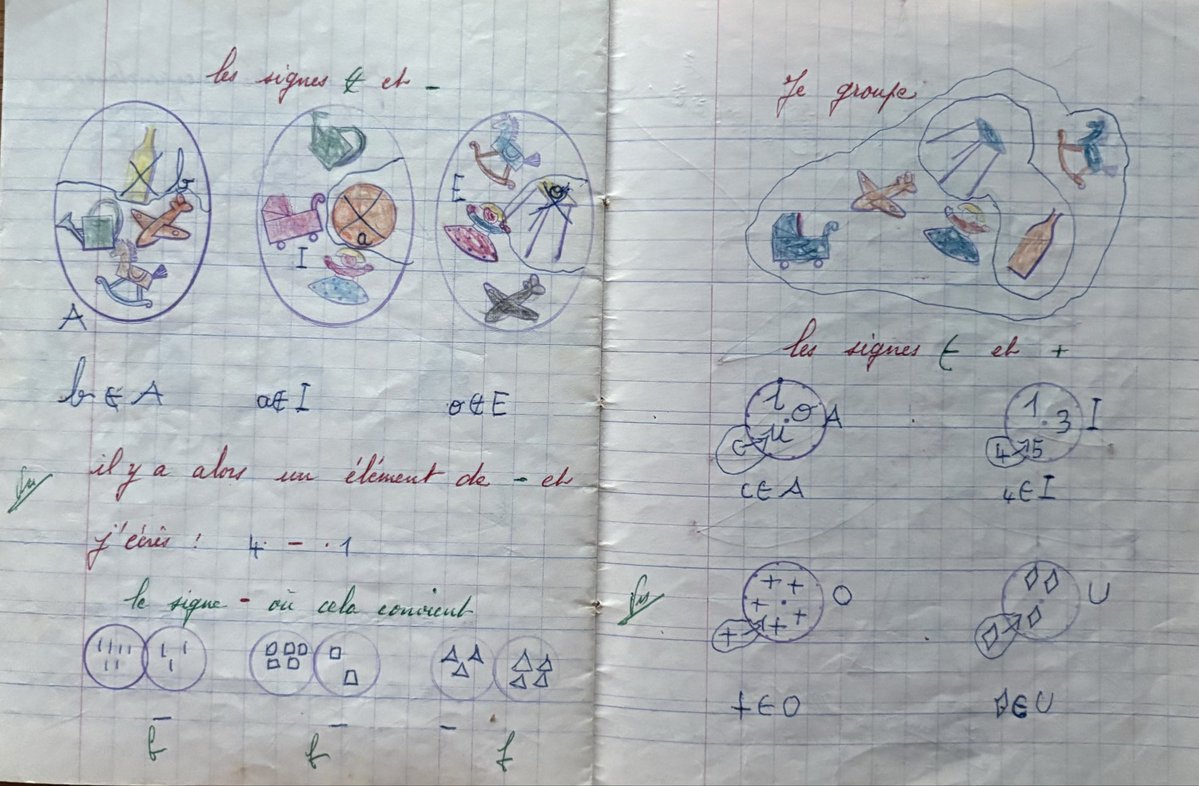 les signes ∉ et -
b
a
I
E
o
A
b ∉ A
a ∉ I
o ∉ E
il y a alors un élément de - et
Vu
j'écris : 4 - 1
le signe - où cela convient
- - -
f f f
Je groupe
les signes ∈ et +
l o
u A
c
1 . 3 I
4 5
c ∈ A
4 ∈ I
+ + O
+ +
+ +
U
Vu
+ ∈ O
◊ ∈ U